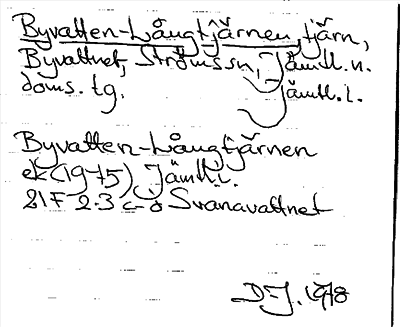 Byvatten-Långtjärnen, tjärn,
Byvattnet, Ströms sn, Jämtl. n.
doms. tg. Jämtl. l.
Byvatten-Långtjärnen
ek (1975) Jämtl. l.
21F 2-3 c-d Svanavattnet
D-J. 1978